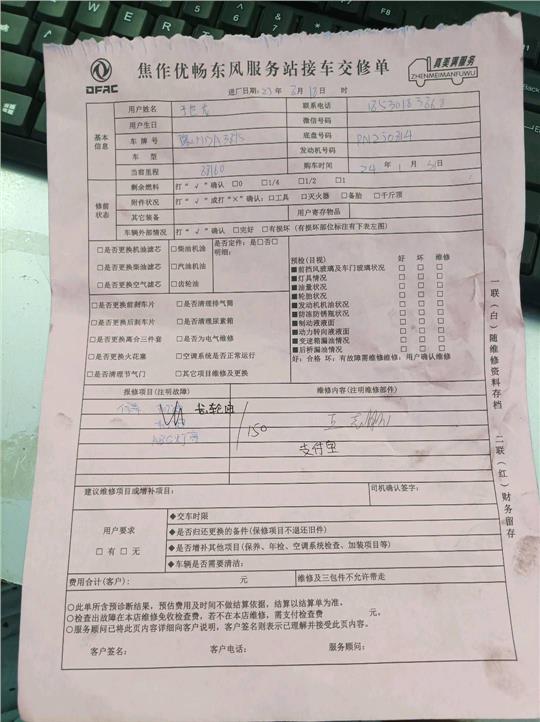 DFAC
焦作优畅东风服务站接车交修单
真美满服务
ZHENMEIMANFUWU
进厂日期: 23 年 月 13 日 时
基本信息
用户姓名
联系电话
用户生日
微信号码
车牌号
底盘号码
车型
发动机号码
当前里程
购车时间 24 年 1 月 日
修前状态
剩余燃料 打“√”确认 □0 □1/4 □1/2 □1
附件状况 打“√”或打“×”确认:□工具 □灭火器 □备胎 □千斤顶
其它装备
用户寄存物品
车辆外部情况 打“√”确认 □完好 □有损坏(有损坏部位标注有下表左图)
□是否更换机油滤芯 □柴油机油
是否定件:是□否□
明细:
□是否更换柴油滤芯 □汽油机油
□是否更换空气滤芯 □齿轮油
□是否更换前刹车片 □是否清理排气筒
□是否更换后刹车片 □是否清理尿素箱
□是否更换离合三件套 □是否为电气维修
□是否更换火花塞 □空调系统是否正常运行
□是否清理节气门 □其它项目维修及更换
预检(目视) 好 坏 维修
■前挡风玻璃及车门玻璃状况 □ □ □
■灯具情况 □ □ □
■油量状况 □ □ □
■轮胎状况 □ □ □
■发动机机油状况 □ □ □
■防冻防锈瓶状况 □ □ □
■制动液液面 □ □ □
■动力转向液液面 □ □ □
■变速箱漏油情况 □ □ □
■后桥漏油情况 □ □ □
好:合格 坏:有故障需维修维修:用户确认维修
报修项目(注明故障)
维修内容(注明维修部件)
齿轮油
150
支付宝
建议维修项目或增补项目:
司机确认签字:
用户要求
□有 □无
◆交车时限
◆是否归还更换的备件(保修项目不退还旧件)
◆是否增补其他项目(保养、年检、空调系统检查、加装项目等)
◆车辆是否需要清洁:
费用合计(客户): 元
维修及三包件不允许带走
○此单所含预诊断结果,预估费用及时间不做结算依据,结算以结算单为准。
○检查出故障在本店维修免收检查费,若不在本店维修,需支付检查费 元。
○服务顾问已将此页内容详细向客户说明,客户签名则表示已理解并接受此页内容。
客户签名: 客户电话: 服务顾问:
一联(白)随维修资料存档 二联(红)财务留存